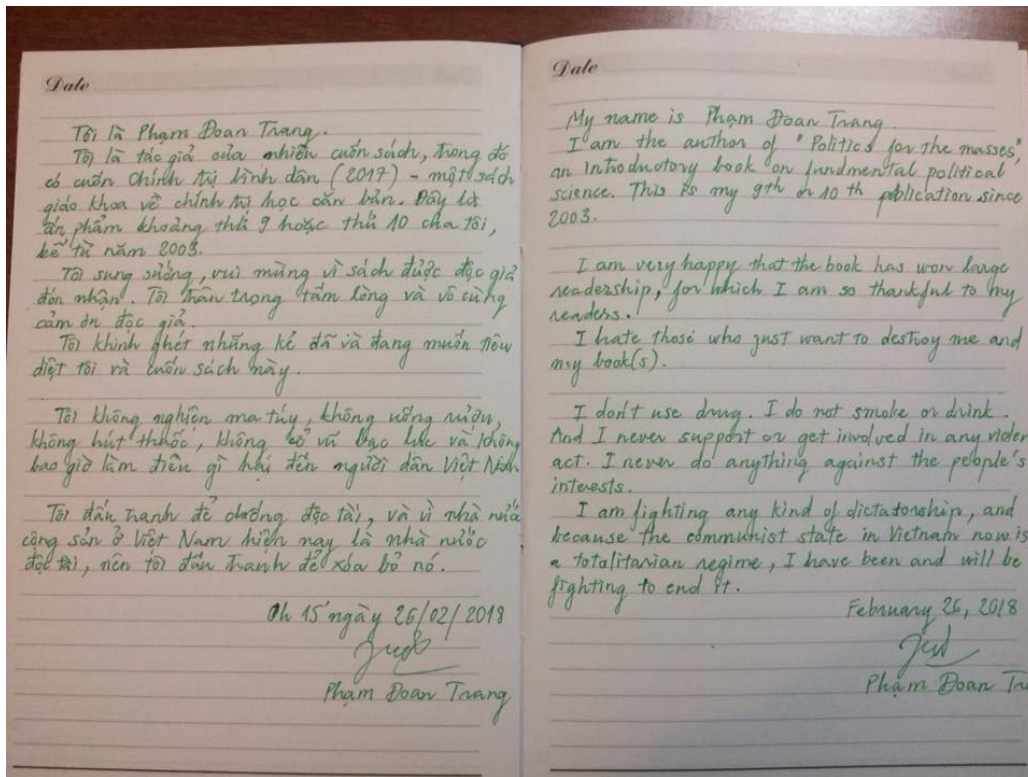 Date
Tôi là Phạm Đoan Trang.
Tôi là tác giả của nhiều cuốn sách, trong đó
có cuốn Chính trị bình dân (2017) – một sách
giáo khoa về chính trị học căn bản. Đây là
ấn phẩm khoảng thứ 9 hoặc thứ 10 của tôi,
kể từ năm 2003.
Tôi sung sướng, vui mừng vì sách được độc giả
đón nhận. Tôi trân trọng tấm lòng và vô cùng
cảm ơn độc giả.
Tôi khinh ghét những kẻ đã và đang muốn tiêu
diệt tôi và cuốn sách này.
Tôi không nghiện ma túy, không uống rượu,
không hút thuốc, không cổ vũ bạo lực và không
bao giờ làm điều gì hại đến người dân Việt Nam
Tôi đấu tranh để chống độc tài, và vì nhà nước
cộng sản ở Việt Nam hiện nay là nhà nước
độc tài, nên tôi đấu tranh để xóa bỏ nó.
0h 15' ngày 26/02/2018
Phạm Đoan Trang
Date
My name is Phạm Đoan Trang
I am the author of "Politics for the masses",
an introductory book on fundmental political
science. This is my 9th or 10th publication since
2003.
I am very happy that the book has won large
readership, for which I am so thankful to my
readers.
I hate those who just want to destroy me and
my book(s).
I don't use drug. I do not smoke or drink.
And I never support or get involved in any violen
act. I never do anything against the people's
interests.
I am fighting any kind of dictatorship, and
because the communist state in Vietnam now is
a totalitarian regime, I have been and will be
fighting to end it.
February 26, 2018
Phạm Đoan Tra